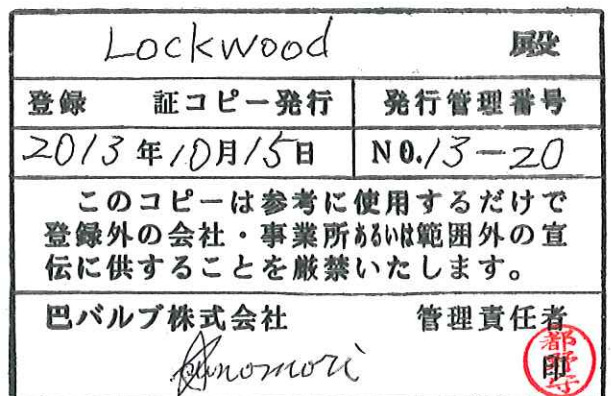 Lockwood 殿
登録 証コピー発行 発行管理番号
2013年10月15日 NO.13-20
このコピーは参考に使用するだけで
登録外の会社・事業所あるいは範囲外の宣
伝に供することを厳禁いたします。
巴バルブ株式会社 管理責任者
印